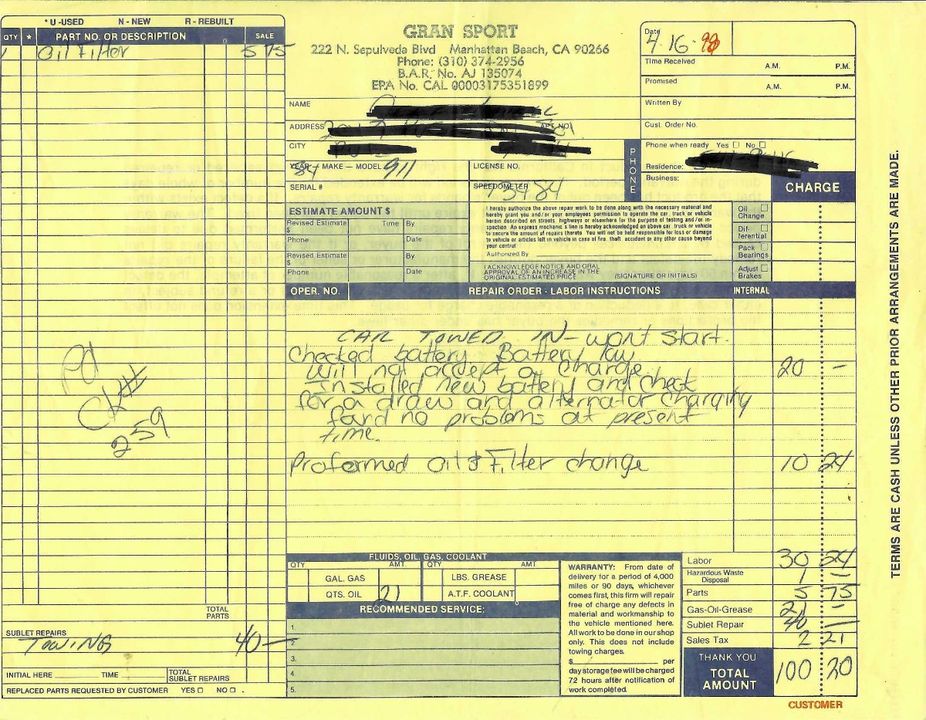 * U -USED N - NEW R - REBUILT
QTY * PART NO. OR DESCRIPTION SALE
1 Oil Filter 5 75
GRAN SPORT
222 N. Sepulveda Blvd Manhattan Beach, CA 90266
Phone: (310) 374-2956
B.A.R. No. AJ 135074
EPA No. CAL 00003175351899
Date
4-16-98
Time Received A.M. P.M.
Promised A.M. P.M.
Written By
Cust. Order No.
Phone when ready Yes No
Residence:
Business:
PHONE
NAME
ADDRESS
CITY
YEAR - MAKE - MODEL LICENSE NO.
84 911
SERIAL # SPEEDOMETER
73484
CHARGE
ESTIMATE AMOUNT $
Revised Estimate Time By
$
Phone Date
Revised Estimate By
$
Phone Date
I hereby authorize the above repair work to be done along with the necessary material and
hereby grant you and/or your employees permission to operate the car, truck or vehicle
herein described on streets, highways or elsewhere for the purpose of testing and/or in-
spection. An express mechanic's lien is hereby acknowledged on above car, truck or vehicle
to secure the amount of repairs thereto. You will not be held responsible for loss or damage
to vehicle or articles left in vehicle in case of fire, theft, accident or any other cause beyond
your control.
Authorized By
I ACKNOWLEDGE NOTICE AND ORAL
APPROVAL OF AN INCREASE IN THE
ORIGINAL ESTIMATED PRICE (SIGNATURE OR INITIALS)
Oil
Change
Dif-
ferential
Pack
Bearings
Adjust
Brakes
OPER. NO. REPAIR ORDER - LABOR INSTRUCTIONS INTERNAL
CAR TOWED IN - wont start.
Checked battery. Battery low
will not accept a charge. 20 -
Installed new battery and check
for a draw and alternator charging
found no problems at present
time.
Proformed oil & Filter change 10 24
Pd
CK#
259
TERMS ARE CASH UNLESS OTHER PRIOR ARRANGEMENTS ARE MADE.
FLUIDS, OIL, GAS, COOLANT
QTY AMT. QTY AMT
GAL. GAS LBS. GREASE
QTS. OIL 21 A.T.F. COOLANT
RECOMMENDED SERVICE:
1.
2.
3.
4.
5.
WARRANTY: From date of
delivery for a period of 4,000
miles or 90 days, whichever
comes first, this firm will repair
free of charge any defects in
material and workmanship to
the vehicle mentioned here.
All work to be done in our shop
only. This does not include
towing charges.
$ per
day storage fee will be charged
72 hours after notification of
work completed.
Labor 30 24
Hazardous Waste
Disposal 1 -
Parts 5 75
Gas-Oil-Grease 21 -
Sublet Repair 40 -
Sales Tax 2 21
THANK YOU
TOTAL
AMOUNT 100 20
TOTAL
PARTS
SUBLET REPAIRS
TOWING 40 -
INITIAL HERE TIME TOTAL
SUBLET REPAIRS
REPLACED PARTS REQUESTED BY CUSTOMER YES NO
CUSTOMER